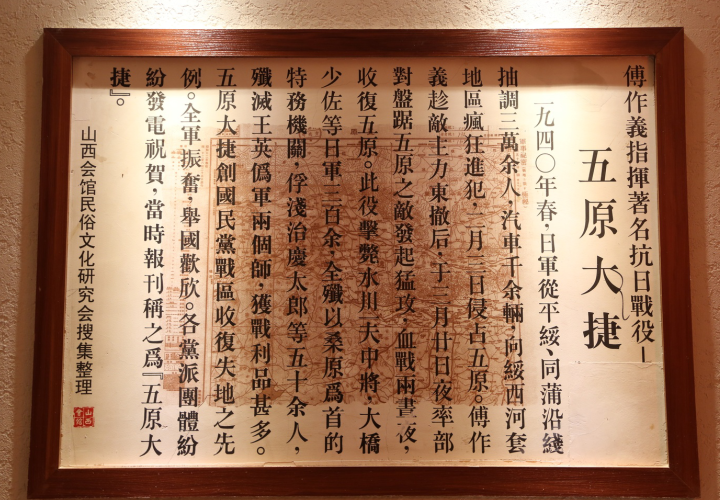 傅作義指揮著名抗日戰役—
五原大捷
一九四〇年春,日軍從平綏、同蒲沿綫
抽調三萬余人,汽車千余輛,向綏西河套
地區瘋狂進犯,二月三日侵占五原。傅作
義趁敵主力東撤后,于三月廿日夜率部
對盤踞五原之敵發起猛攻,血戰兩晝夜,
收復五原。此役擊斃水川一夫中將,大橋
少佐等日軍三百余,全殲以桑原爲首的
特務機關,俘淺治慶太郎等五十余人,
殲滅王英僞軍兩個師,獲戰利品甚多。
五原大捷創國民黨戰區收復失地之先
例。全軍振奮,舉國歡欣。各黨派團體紛
紛發電祝賀,當時報刊稱之爲『五原大
捷』。
山西会馆民俗文化研究会搜集整理
山西
會館